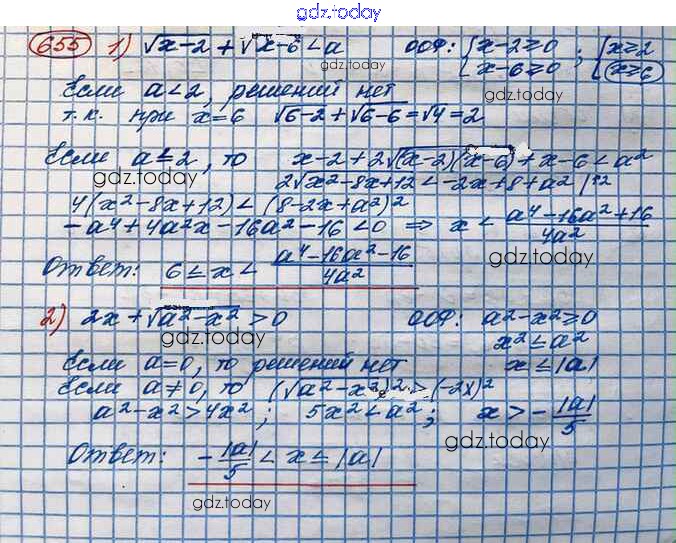 gdz.today
655 1) √x-2 + √x-6 < a ООФ: {x-2≥0 {x-6≥0 ; {x≥2 {x≥6
gdz.today
Если a<2, решений нет
gdz.today
т.к. при x=6 √6-2 + √6-6 = √4 = 2
Если a≤2, то x-2+2√(x-2)(x-6) + x-6 < a²
gdz.today
2√x²-8x+12 < -2x+8+a² |↑2
4(x²-8x+12) < (8-2x+a²)²
-a⁴+4a²x-16a²-16<0 ⇒ x < a⁴-16a²+16 / 4a²
gdz.today
Ответ: 6 ≤ x < a⁴-16a²-16 / 4a²
2) 2x+√a²-x² > 0 ООФ: a²-x²≥0
gdz.today
x² ≤ a²
Если a=0, то решений нет x ≤ |a|
Если a≠0, то (√a²-x²)² > (-2x)²
a²-x²>4x² ; 5x²<a² ; x > - |a| / 5
gdz.today
Ответ: - |a| / 5 < x ≤ |a|
gdz.today